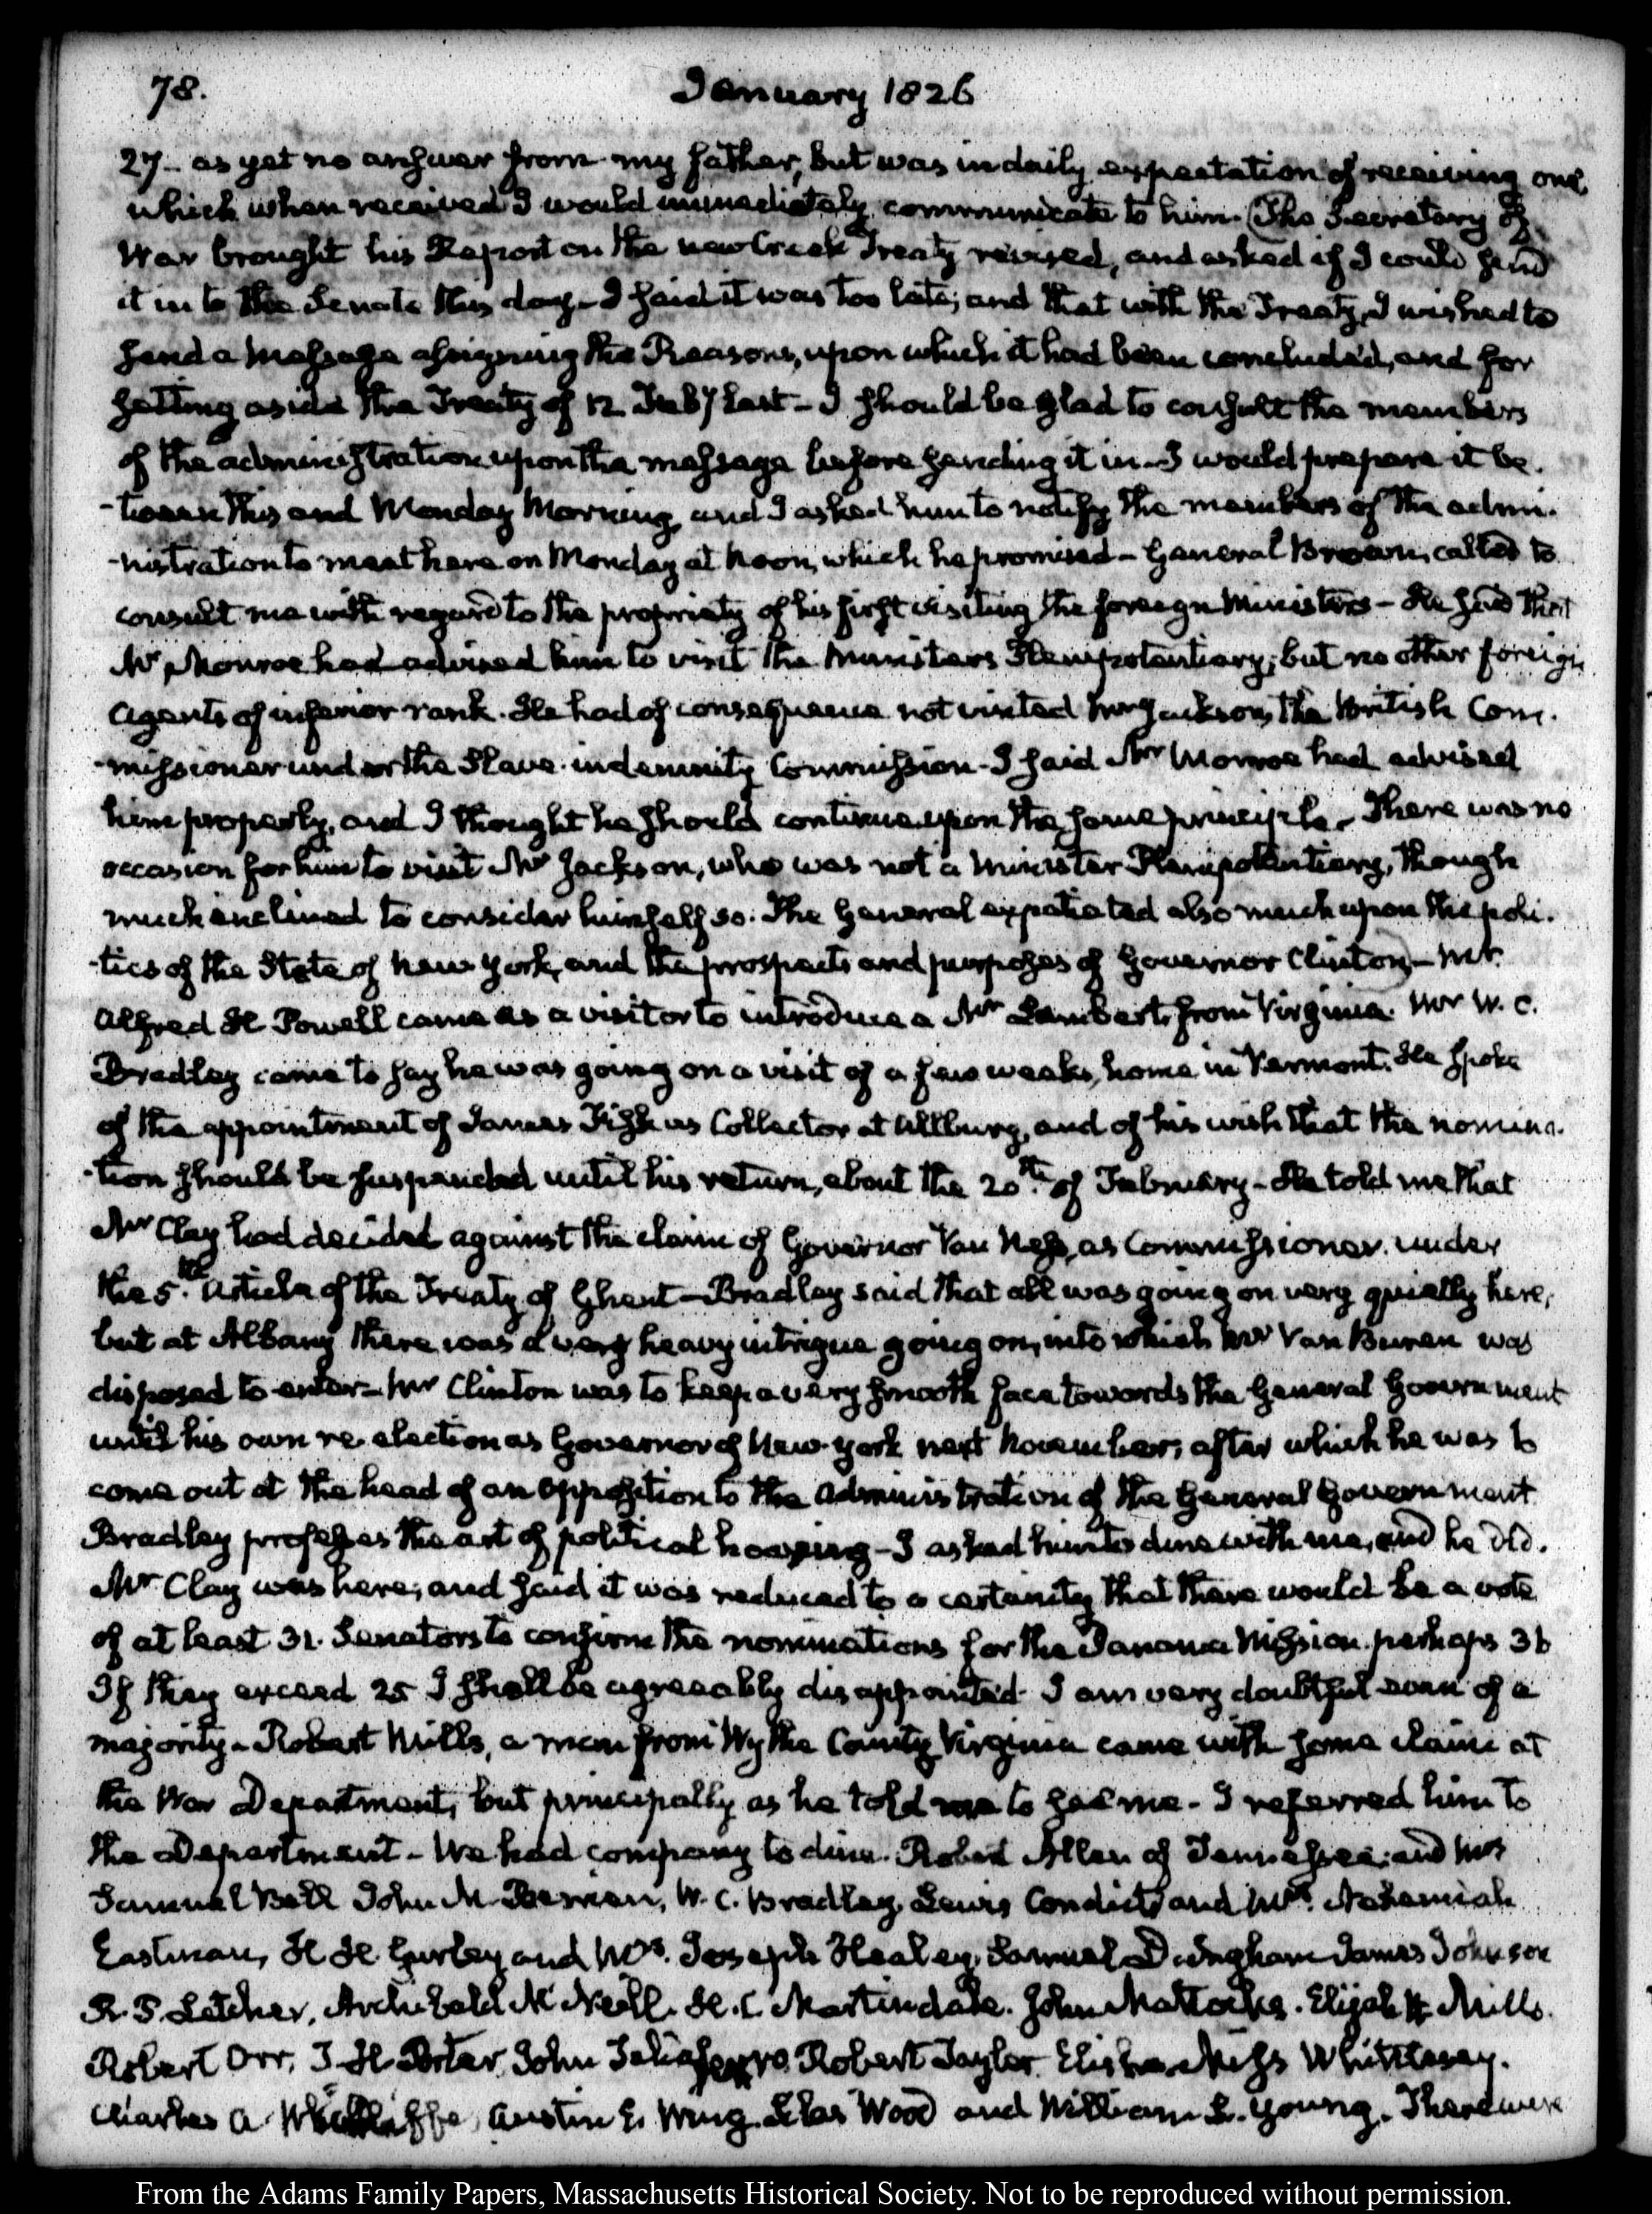 78. January 1826
27— as yet no answer from my father, but was in daily expectation of receiving one,
which when received I would immediately communicate to him. (The Secretary of
War brought his Report on the new Creek Treaty revised, and asked if I could send
it in to the Senate this day— I said it was too late; and that with the Treaty, I wished to
send a Message assigning the Reasons, upon which it had been concluded, and for
setting aside the Treaty of 12 Feby last— I should be glad to consult the members
of the administration upon the message before sending it in— I would prepare it be-
-tween this and Monday Morning, and I asked him to notify the members of the admi-
-nistration to meet here on Monday at Noon, which he promised— General Brown, called to
consult me with regard to the propriety of his first visiting the foreign Ministers— He said that
Mr Monroe had advised him to visit the Ministers Plenipotentiary; but no other foreign
Agents of inferior rank. He had of consequence not visited Jackson, the British Com-
-missioner under the Slave-indemnity Commission— I said Mr Monroe had advised
him properly, and I thought he should continue upon the same principle— There was no
occasion for him to visit Mr Jackson, who was not a Minister Plenipotentiary, though
much inclined to consider himself so. The General expatiated also much upon the poli-
-tics of the State of New York, and the prospects and purposes of Governor Clinton)— Mr.
Alfred H Powell came as a visitor to introduce a Mr Lambert, from Virginia. Mr W. C.
Bradley came to say he was going on a visit of a few weeks, home in Vermont. He spoke
of the appointment of James Fisk as Collector at Allburg, and of his wish that the nomina-
-tion should be suspended until his return, about the 20th. of February— He told me that
Mr Clay had decided against the claim of Governor Van Ness, as Commissioner under
the 5th. Article of the Treaty of Ghent— Bradley said that all was going on very quietly here,
but at Albany there was a very heavy intrigue going on, into which Mr Van Buren was
disposed to enter— Mr Clinton was to keep a very smooth face towards the General Government
until his own re-election as Governor of New-York next November; after which he was to
come out at the head of an opposition to the Administration of the General Government
Bradley professes the art of political— I asked him to dine with me, and he did.
Mr Clay was here; and said it was reduced to a certainty that there would be a vote
of at least 31. Senators to confirm the nominations for the Panama Mission. perhaps 36
If they exceed 25 I shall be agreeably disappointed. I am very doubtful even of a
majority— Robert Mills, a man from Wythe County Virginia came with some claim at
the War Department, but principally as he told me to see me— I referred him to
the Department— We had company to dine. Robert Allen of Tennessee; and Mrs
Samuel Bell John M. Berrien, W. C. Bradley, Lewis Condict and Mrs. Nehemiah
Eastman, H H Gurley and Mrs. Joseph Healey, Samuel D. Ingham James Johnson
R. P. Letcher, Archibald McNeill. H. C. Martindale. John Mattocks. Elijah H Mills.
Robert Orr, T H Porter, John Taliaferro, Robert Taylor. Elisha Whittlesey.
Charles A Wickliffe, Austin E. Wing. Silas Wood and William S. Young. There were
From the Adams Family Papers, Massachusetts Historical Society. Not to be reproduced without permission.